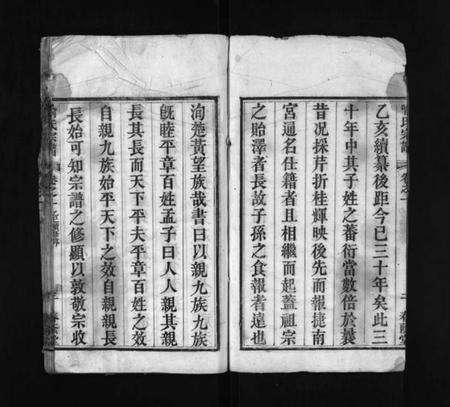 乙亥續纂後距今已三十年矣此三
十年中其子姓之蕃衍當數倍於曩
昔况採芹折桂輝映後先而報捷南
宮通名仕籍者且相繼而起蓋祖宗
之貽澤者長故子孫之食報者遠也
洵楚黃望族哉書曰以親九族九族
既睦平章百姓孟子曰人人親其親
長其長而天下平夫平章百姓之效
自親九族始平天下之效自親親長
長始可知宗譜之修顯以敦敬宗收
氏宗譜